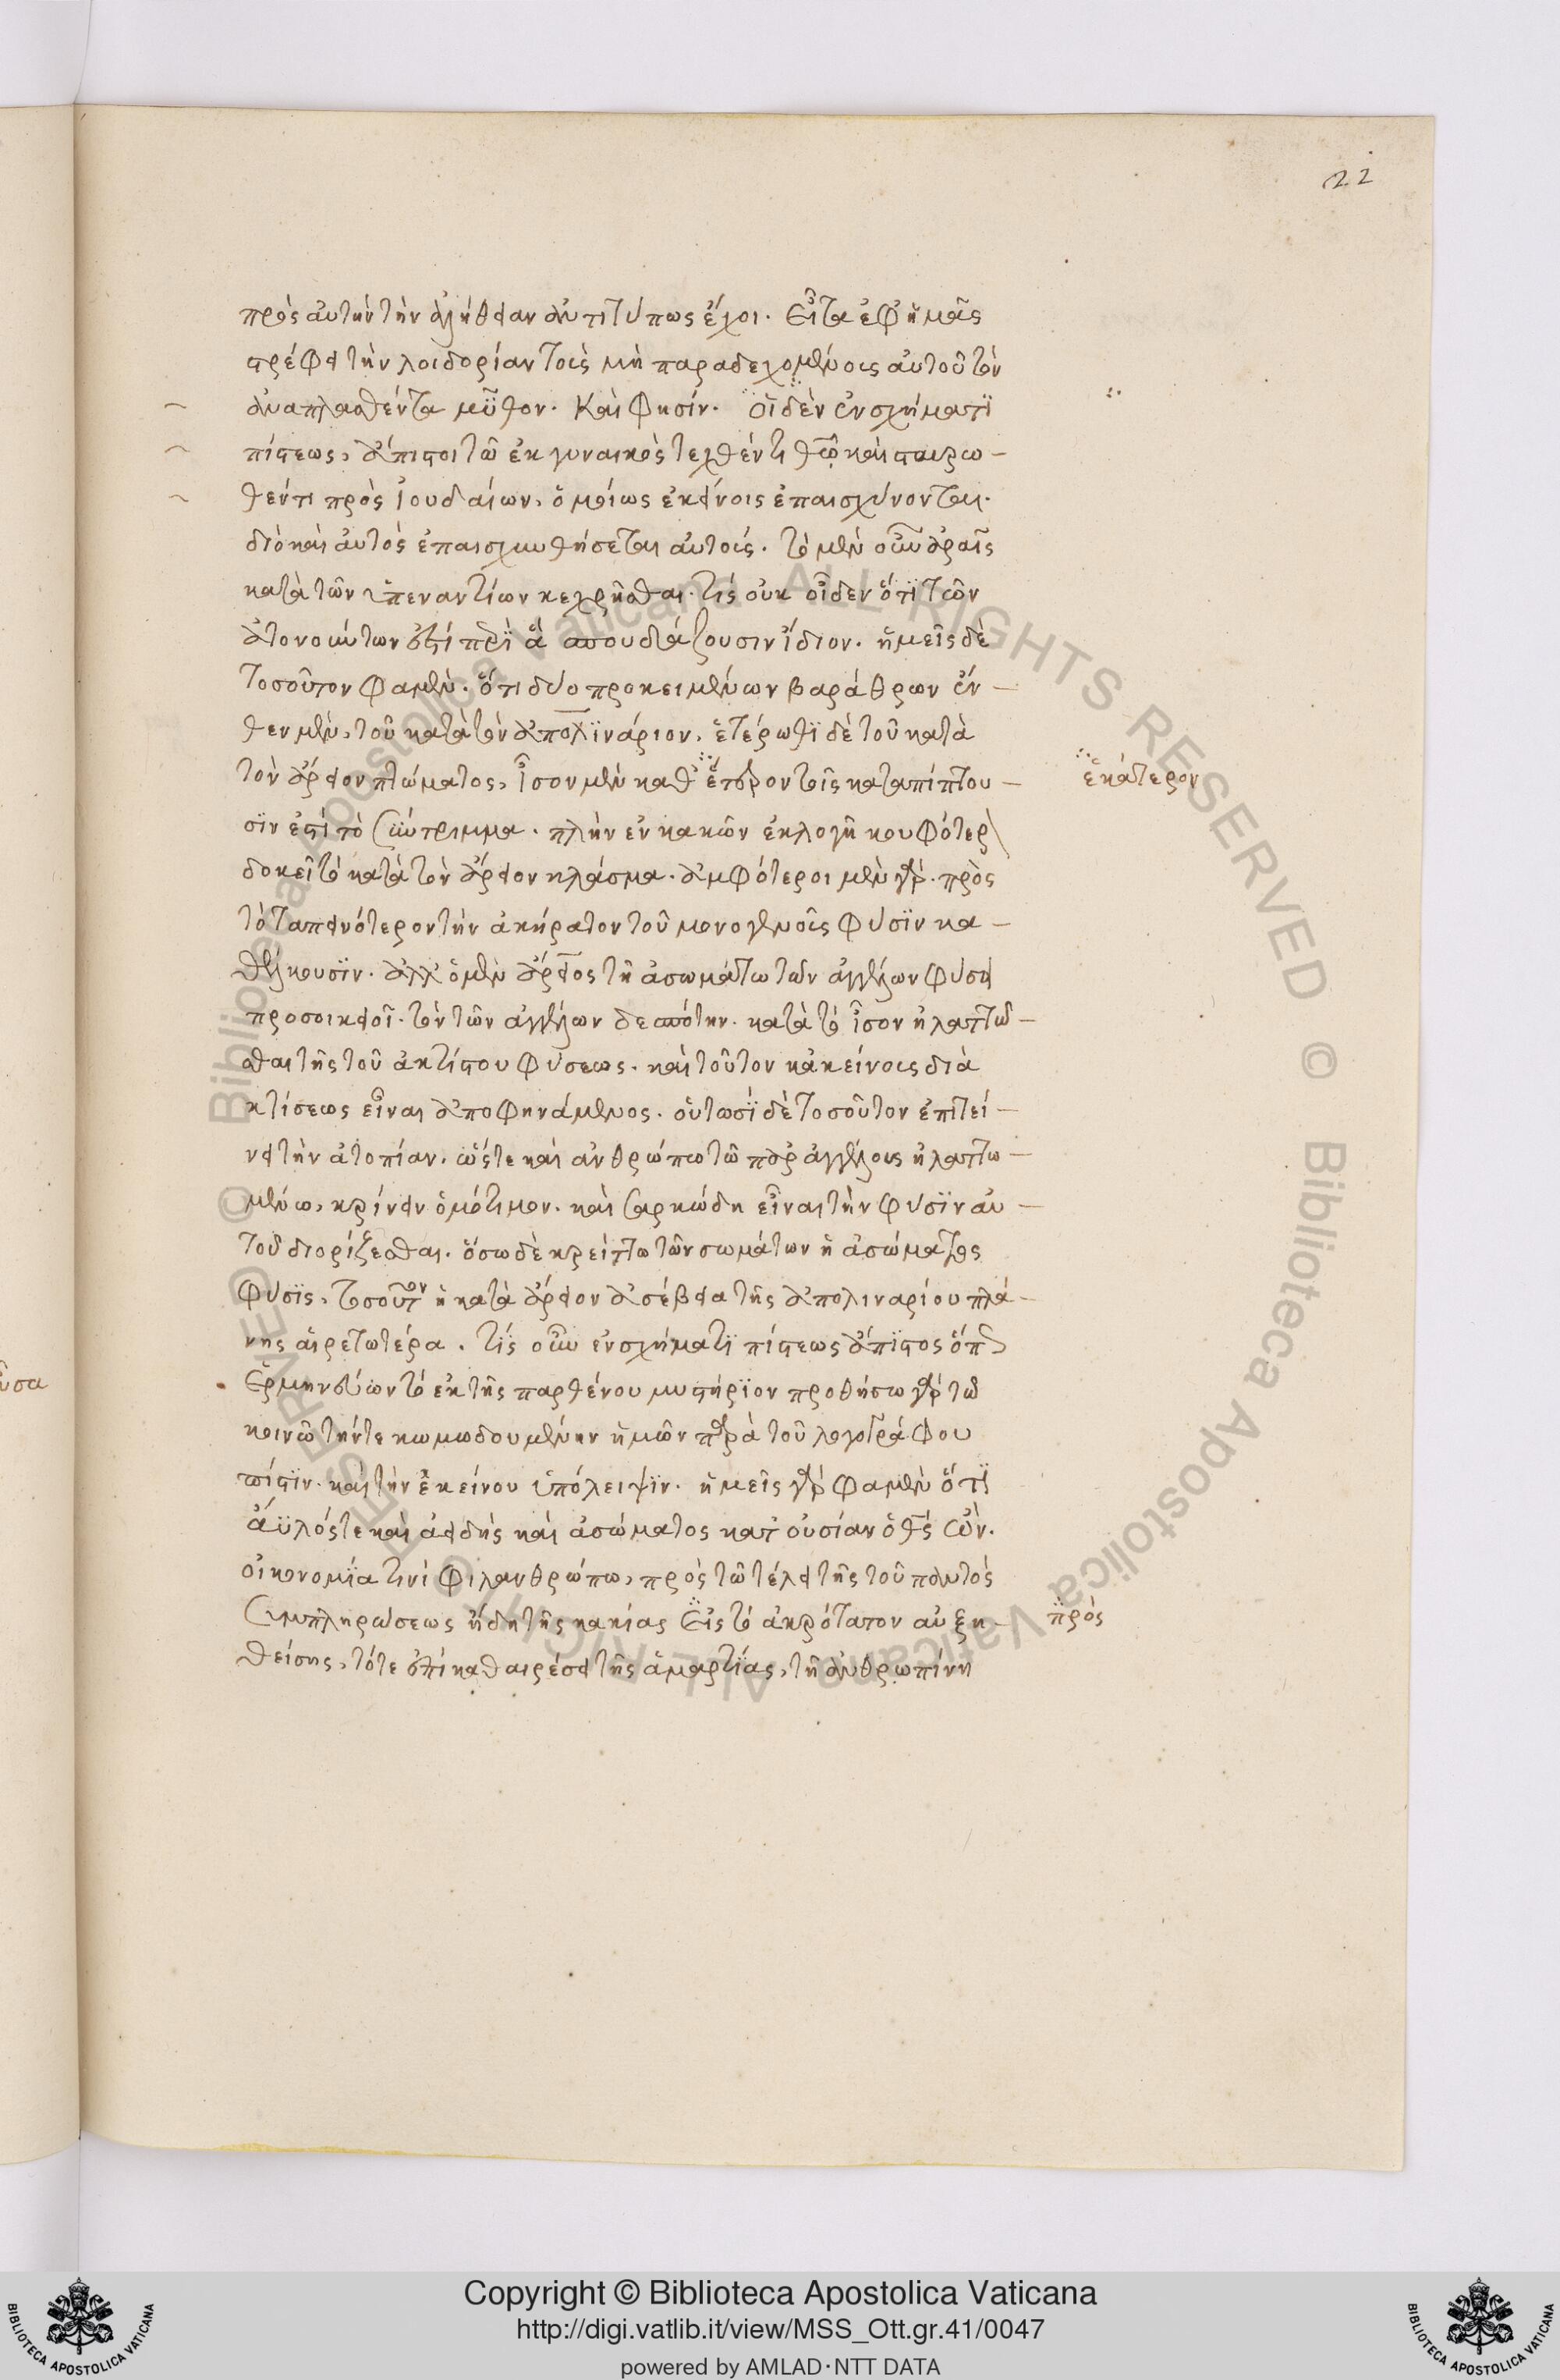 22
πρὸς αὐτὴν τὴν ἀλήθειαν ἀντιτύπως ἔχοι. Εἶτα ἐφ ἡμᾶς
στρέφει τὴν λοιδορίαν τοῖς μὴ παραδεχομένοις αὐτοῦ τὸν
ἀναπλασθέντα μῦθον. Καὶ φησίν. οἱ δὲ ἐν σχήματι
πίστεως, ἄπιστοι τῶ ἐκ γυναικὸς τεχθέντι θῶ καὶ σταυρω-
θέντι πρὸς ἰουδαίων, ὁμοίως ἐκείνοις ἐπαισχύνονται.
διὸ καὶ αὐτὸς ἐπαισχυνθήσεται αὐτοῖς. τὸ μὲν οὖν ἀραῖς
κατὰ τῶν ὑπεναντίων κεχρῆσθαι. τίς οὐκ οἶδεν ὅτι τῶν
ἀτονούντων ἐστὶ περὶ ἃ σπουδάζουσιν ἴδιον. ἡμεῖς δὲ
τοσοῦτον φαμὲν. ὅτι δύο προκειμένων βαράθρων ἔν-
θεν μὲν, τοῦ κατὰ τὸν ἀπολινάριον, ἑτέρωθι δὲ τοῦ κατὰ
τὸν ἄρειον πτώματος, ἶσον μὲν καθ ἕτερον τοῖς καταπίπτου-
ἑκάτερον
σιν ἐστὶ τὸ σύντριμμα. πλὴν ἐν κακῶν ἐκλογῆ κουφότερ
δοκεῖ τὸ κατὰ τὸν ἄρειον κλάσμα. ἀμφότεροι μὲν γὰρ. πρὸς
τὸ ταπεινότερον τὴν ἀκήρατον τοῦ μονογενοῦς φύσιν κα-
θέλκουσιν. ἀλλ ὁ μὲν ἄρειος τῆ ἀσωμάτω τῶν ἀγγέλων φύσει
προσοικειοῖ. τὸν τῶν ἀγγέλων δεσπότην. κατὰ τὸ ἶσον ἠλαττῶ-
σθαι τῆς τοῦ ἀκτίστου φύσεως. καὶ τοῦτον κἀκείνοις διὰ
κτίσεως εἶναι ἀποφηνάμενος. οὑτωσὶ δὲ τοσοῦτον ἐπιτεί-
νει τὴν ἀτοπίαν. ὥστε καὶ ἀνθρώπω τῶ παρ ἀγγέλους ἠλαττω-
μένω, κρίνειν ὁμότιμον. καὶ σαρκώδη εἶναι τὴν φύσιν αὐ-
τοῦ διορίζεσθαι. ὅσω δὲ κρείττω τῶν σωμάτων ἡ ἀσώματος
φύσις, τοσοῦτον ἡ κατὰ ἄρειον ἀσέβεια τῆς ἀπολιναρίου πλά-
νης αἱρετωτέρα. τίς οὖν ἐν σχήματι πίστεως ἄπιστος
Ἑρμηνεύων τὸ ἐκ τῆς παρθένου μυστήριον προθήσω γὰρ τῶ
κοινῶ τήν τε κωμωδουμένην ἡμῶν παρὰ τοῦ λογογράφου
πίστιν. καὶ τὴν ἐκείνου ὑπόλειψιν. ἡμεῖς γὰρ φαμὲν ὅτι
ἄϋλός τε καὶ ἀειδὴς καὶ ἀσώματος κατ οὐσίαν ὁ θς ὢν.
οἰκονομία τινὶ φιλανθρώπω, πρὸς τῶ τέλει τῆς τοῦ παντὸς
συμπληρώσεως ἤδη τῆς κακίας Εἰς τὸ ἀκρότατον αὐξη-
πρὸς
θείσης, τότε ἐπὶ καθαιρέσει τῆς ἁμαρτίας, τῆ ἀνθρωπίνη
ῦσα
Copyright © Biblioteca Apostolica Vaticana
http://digi.vatlib.it/view/MSS_Ott.gr.41/0047
powered by AMLAD·NTT DATA
BIBLIOTECA APOSTOLICA VATICANA
BIBLIOTECA APOSTOLICA VATICANA
© Biblioteca Apostolica Vaticana ALL RIGHTS RESERVED © Biblioteca Apostolica Vaticana ALL RIGHTS RESERVED